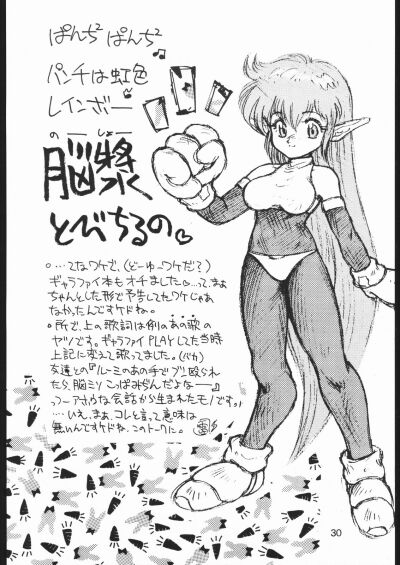 ぱんち² ぱんち²
パンチは虹色
レインボー
のーしょー
脳漿
とびちるの
○……てなワケで、(どーゆーワケだ?)
ギャラファイ本もオチました ……って、まぁ
ちゃんとした形で予告してたワケじゃあ
なかったんですケドね。
・所で、上の歌詞は例のあの歌の
ヤツです。ギャラファイPLAYした当時
上記に変えて歌ってました。(バカ)
友達との『ルーミのあの手でブン殴られ
たら、脳ミソこっぱみじんだよなーー』
っつーアホな会話から生まれたモノです!
……いえ、まぁ、コレと言って意味は
無いんですケドね、このトークに。
30